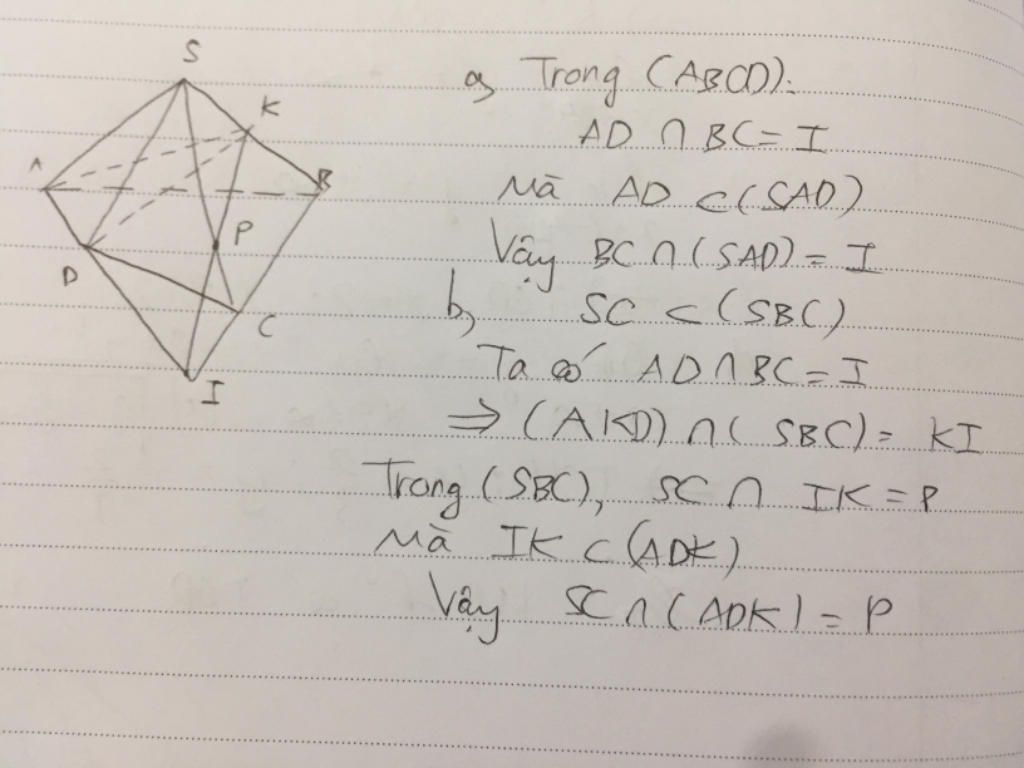 S
K
A
B
P
D
C
I
a, Trong (ABCD):
AD ∩ BC = I
Mà AD ⊂ (SAD)
Vậy BC ∩ (SAD) = I
b, SC ⊂ (SBC)
Ta có AD ∩ BC = I
⇒ (AKD) ∩ (SBC) = KI
Trong (SBC), SC ∩ IK = P
Mà IK ⊂ (ADK)
Vậy SC ∩ (ADK) = P